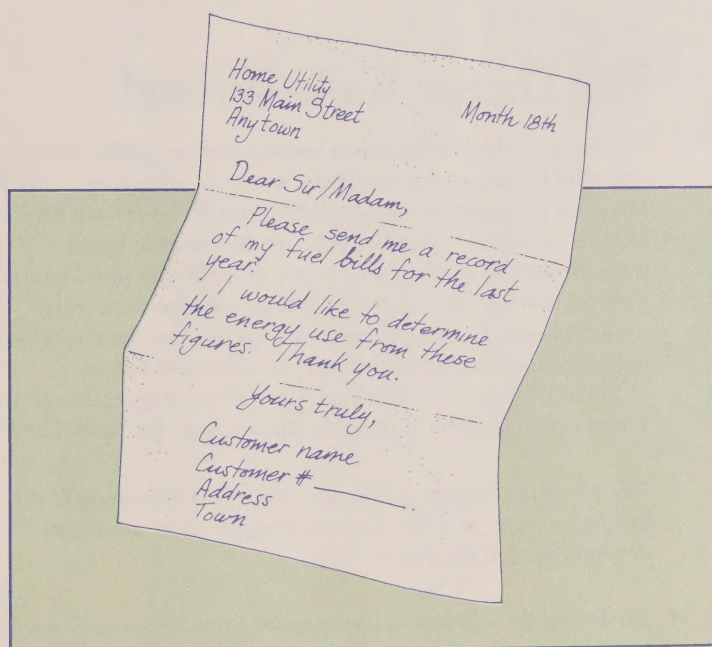 Home Utility
133 Main Street
Anytown
Month 18th
Dear Sir/Madam,
Please send me a record
of my fuel bills for the last
year.
I would like to determine
the energy use from these
figures. Thank you.
Yours truly,
Customer name
Customer #
Address
Town